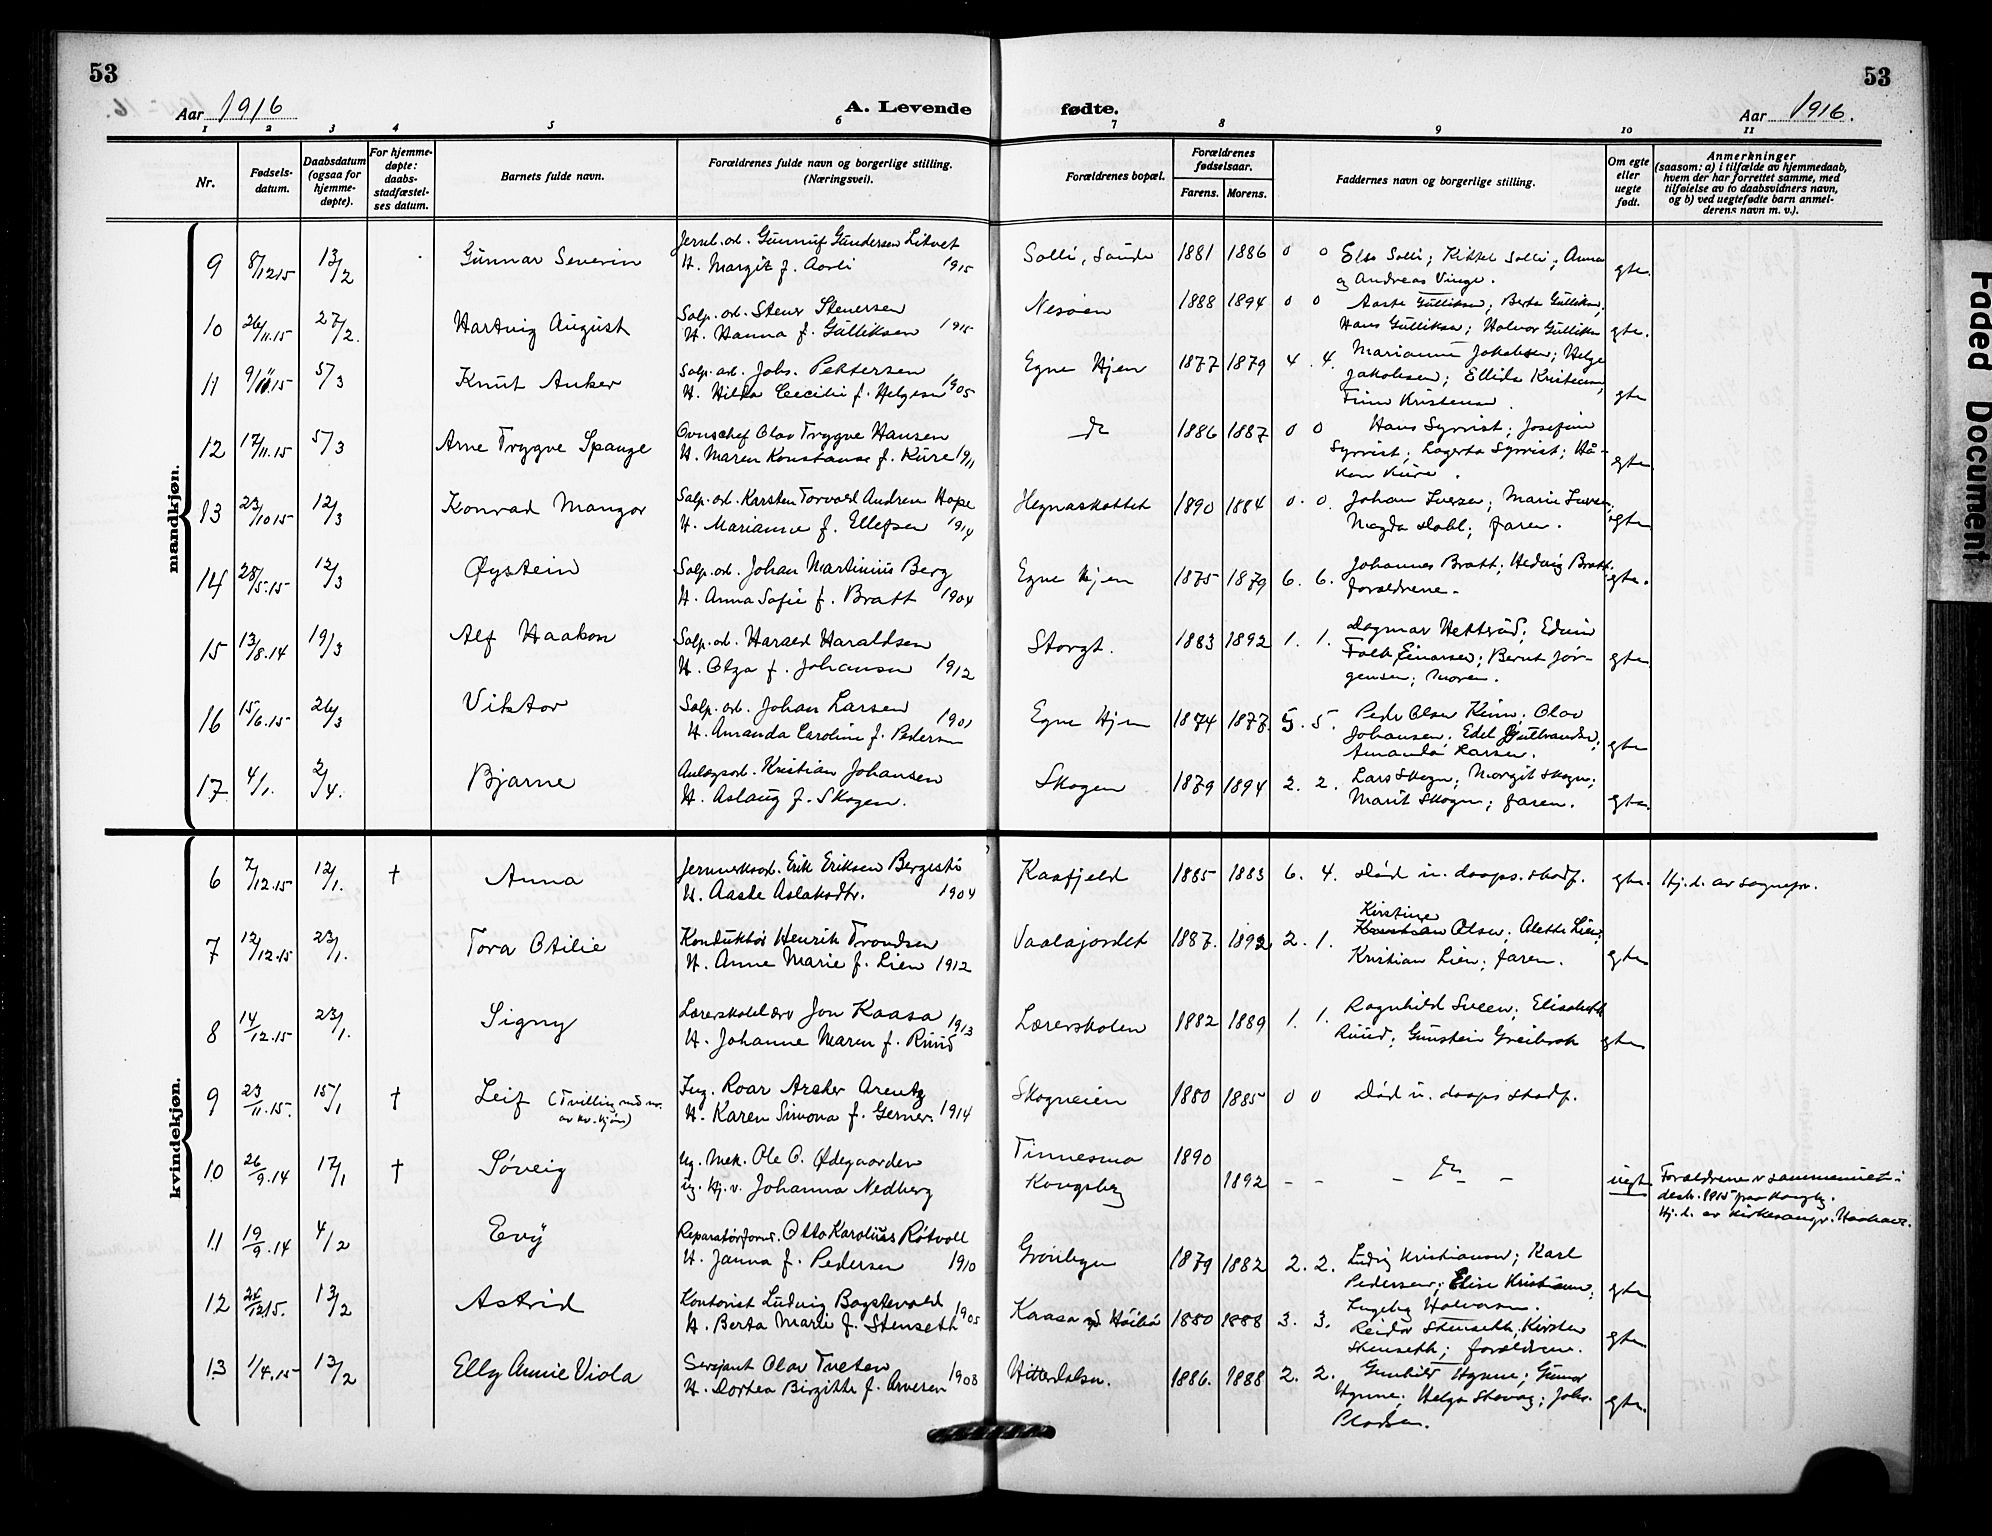 53
53
Aar 1916
A. Levende
fødte.
Aar 1916.
1 2 3 4 5 6 7 8 9 10 11
Nr.
Fødsels-
datum.
Daabsdatum
(ogsaa for
hjemme-
døpte).
For hjemme-
døpte:
daabs-
stadfæstel-
ses datum.
Barnets fulde navn.
Forældrenes fulde navn og borgerlige stilling.
(Næringsvei).
Forældrenes bopæl.
Forældrenes
fødselsaar.
Farens. Morens.
Faddernes navn og borgerlige stilling.
Om egte
eller
uegte
født.
Anmerkninger
(saasom: a) i tilfælde av hjemmedaab,
hvem der har forrettet samme, med
tilføielse av to daabsvidners navn,
og b) ved uegtefødte barn anmel-
derens navn m. v.).
mandkjøn.
9 8/12 15 13/2 Gunnar Severin
Jernb. arb. Gunnuf Gundersen Litvet
H. Margit f. Aasli 1915
Solli, Saude 1881 1886 0 0
Else Solli; Kittel Solli; Anna
og Andreas Vinge. gte.
10 26/11.15 27/2. Hartvig August
Salp. arb. Stener Stenersen
H. Hanna f. Gulliksen 1915
Nesøen 1888 1894 0 0
Aaste Gulliksen; Berte Gulliksen;
Hans Gulliksen; Halvor Gulliksen gte.
11 9/11.15 5/3 Knut Anker
Salp. arb. Johs. Pettersen
H. Hilda Cecilie f. Helgesen 1905
Egne Hjem 1877 1879 4. 4.
Marianne Jakobsen; Helge
Jakobsen; Ellida Kristensen,
Finn Kristensen. gte
12 17/11.15 5/3 Arne Trygve Spange
Ovnschef Olav Trygve Hansen
H. Maren Konstanse f. Kure 1911
do 1886 1887 0 0
Hans Syrrist; Josefine
Syrrist; Lagerta Syrrist; Hå-
kon Kure. gte
13 23/10 15 12/3 Konrad Mangor
Salp. arb. Karsten Torvald Andreas Hope
H. Marianne f. Ellefsen 1914
Hegnaskottet 1890 1884 0. 0.
Johan Iversen; Marie Iversen,
Magda Dahl; faren. gte
14 28/5.15 12/3 Øystein
Salp. arb. Johan Martinius Berg
H. Anna Sofie f. Bratt 1904
Egne Hjem 1875 1879 6. 6.
Johannes Bratt; Hedvig Bratt.
forældrene. gte.
15 13/8.14 19/3 Alf Haakon
Salp. arb. Harald Haraldsen
H. Olga f. Johansen 1912
Storgt. 1883 1892 1. 1.
Dagmar Hettrud; Edvin
Falk Einarsen; Bernt Jør-
gensen; moren. gte
16 15/6.15 26/3 Viktor
Salp. arb. Johan Larsen
H. Amanda Caroline f. Pedersen 1901
Egne Hjem 1874 1877 5. 5.
Peder Olsen Kim; Olav
Johansen. Edel Guttrandsen,
Amanda Larsen. gte
17 4/1. 2/4. Bjarne
Anlægsarb. Kristian Johansen
H. Aslaug f. Skogen.
Skogen 1879 1894 2. 2.
Lars Skogen; Margit Skogen;
Marit Skogen; faren. gte.
kvindekjøn.
6 7/12.15 12/1. † Anna
Jernverksarb. Erik Eriksen Bergestø
H. Aaste Aslaksdtr. 1904
Kaafjeld 1885 1883 6. 4. død u. daaps. stadf. gte. Hj. d. av sognepr.
7 12/12.15 23/1. Tora Otilie
Konduktør Henrik Trondsen
H. Anne Marie f. Lien 1912
Vaalajordet 1887. 1892 2. 1.
Kirstine
Kristian Olsen; Alette Lien;
Kristian Lien; faren. gte
8 14/12.15 23/1. Signy
Lærerskolelærer Jon Kaasa
H. Johanne Maren f. Ruud 1913
Lærerskolen 1882 1889 1. 1.
Ragnhild Sveen; Elisabeth
Ruud; Gunstein Greibrok gte
9 23/11.15. 15/1 † Leif (Tvilling med nr.
av kv. kjøn)
Ing. Roar Asker Arentz
H. Karen Simona f. Gerner. 1914
Skogneien 1880 1885 0 0 død u. daaps stadf.
10 26/9.14 17/1 † Søveig
Ug. Mek. Ole O. Ødegaarden
ug. Hj.v. Johanna Nedberg
Tinnesmo 1890
Kongsberg 1892 – – – do – uegt
Forældrene v sammenviet i
desb. 1915 paa Kongsbg.
Hj. d. av kirkesanger Haahavn.
11 19/9.14 4/2 Evy
Reparatørform. Otto Karolius Røtvoll
H. Janna f. Pedersen 1910
Grønbyen 1879 1882 2. 2.
Ludvig Kristiansen; Karl
Pedersen; Elise Kristiansen;
Ingebg Halvorsen. gte
12 26/12 15. 13/2 Astrid
Kontorist Ludvig Bogstevold
H. Berta Marie f. Stenseth 1905
Kaasa v/ Høibø 1880 1888 3. 3.
Reidar Stenseth; Kirsten
Stenseth; forældrene. gte
13 1/4.15 13/2 Elly Annie Viola
Sersjant Olav Tveten
H. Dortea Birgitte f. Arnesen 1908
Hitterdalen. 1886. 1888 2. 2.
Gunhild Hynne; Gunnar
Hynne; Helga Stavag; Johs.
Pladsen. gte.
Faded Document